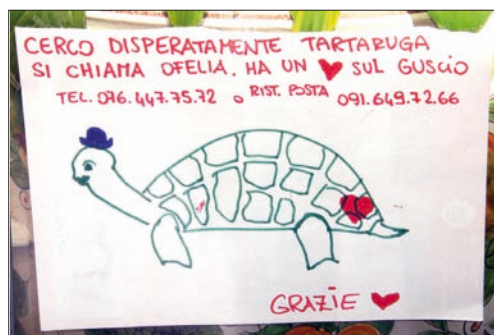 CERCO DISPERATAMENTE TARTARUGA
SI CHIAMA OFELIA. HA UN ♥ SUL GUSCIO
TEL. 076.447.75.72 o RIST. POSTA 091.649.72.66
GRAZIE ♥